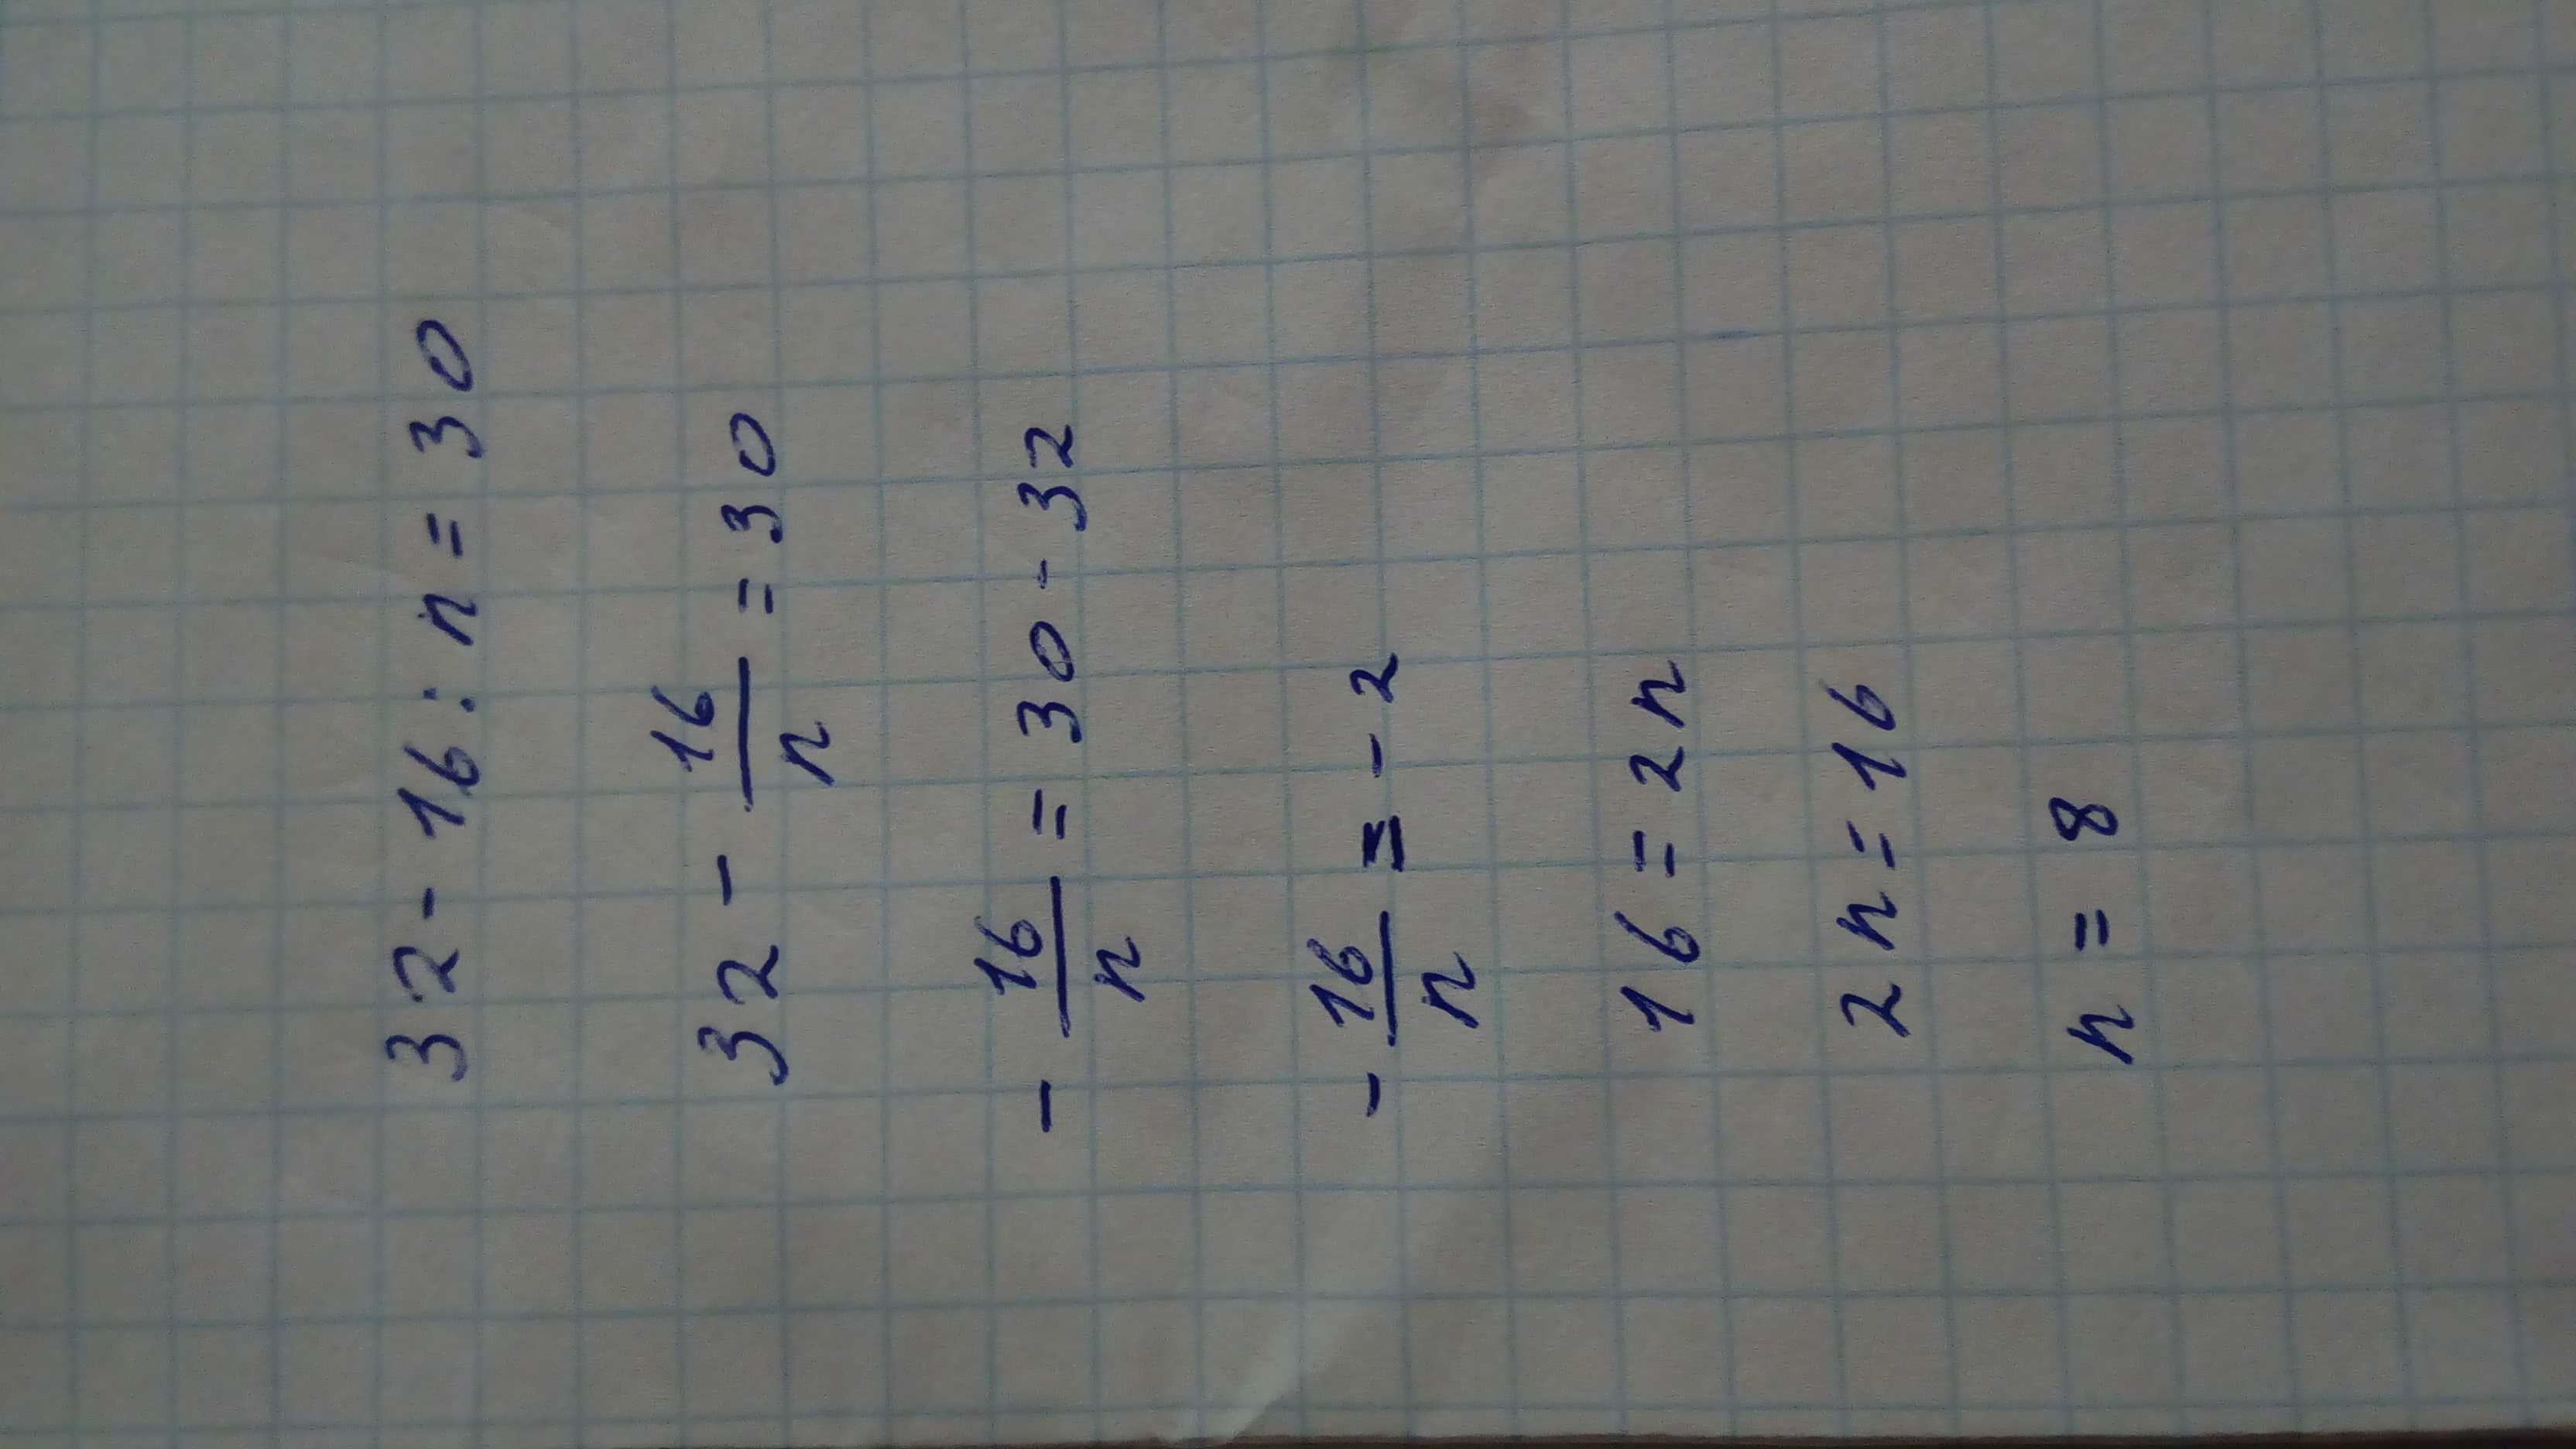 32 - 16 : n = 30
32 - 16/n = 30
- 16/n = 30 - 32
- 16/n = - 2
16 = 2n
2n = 16
n = 8